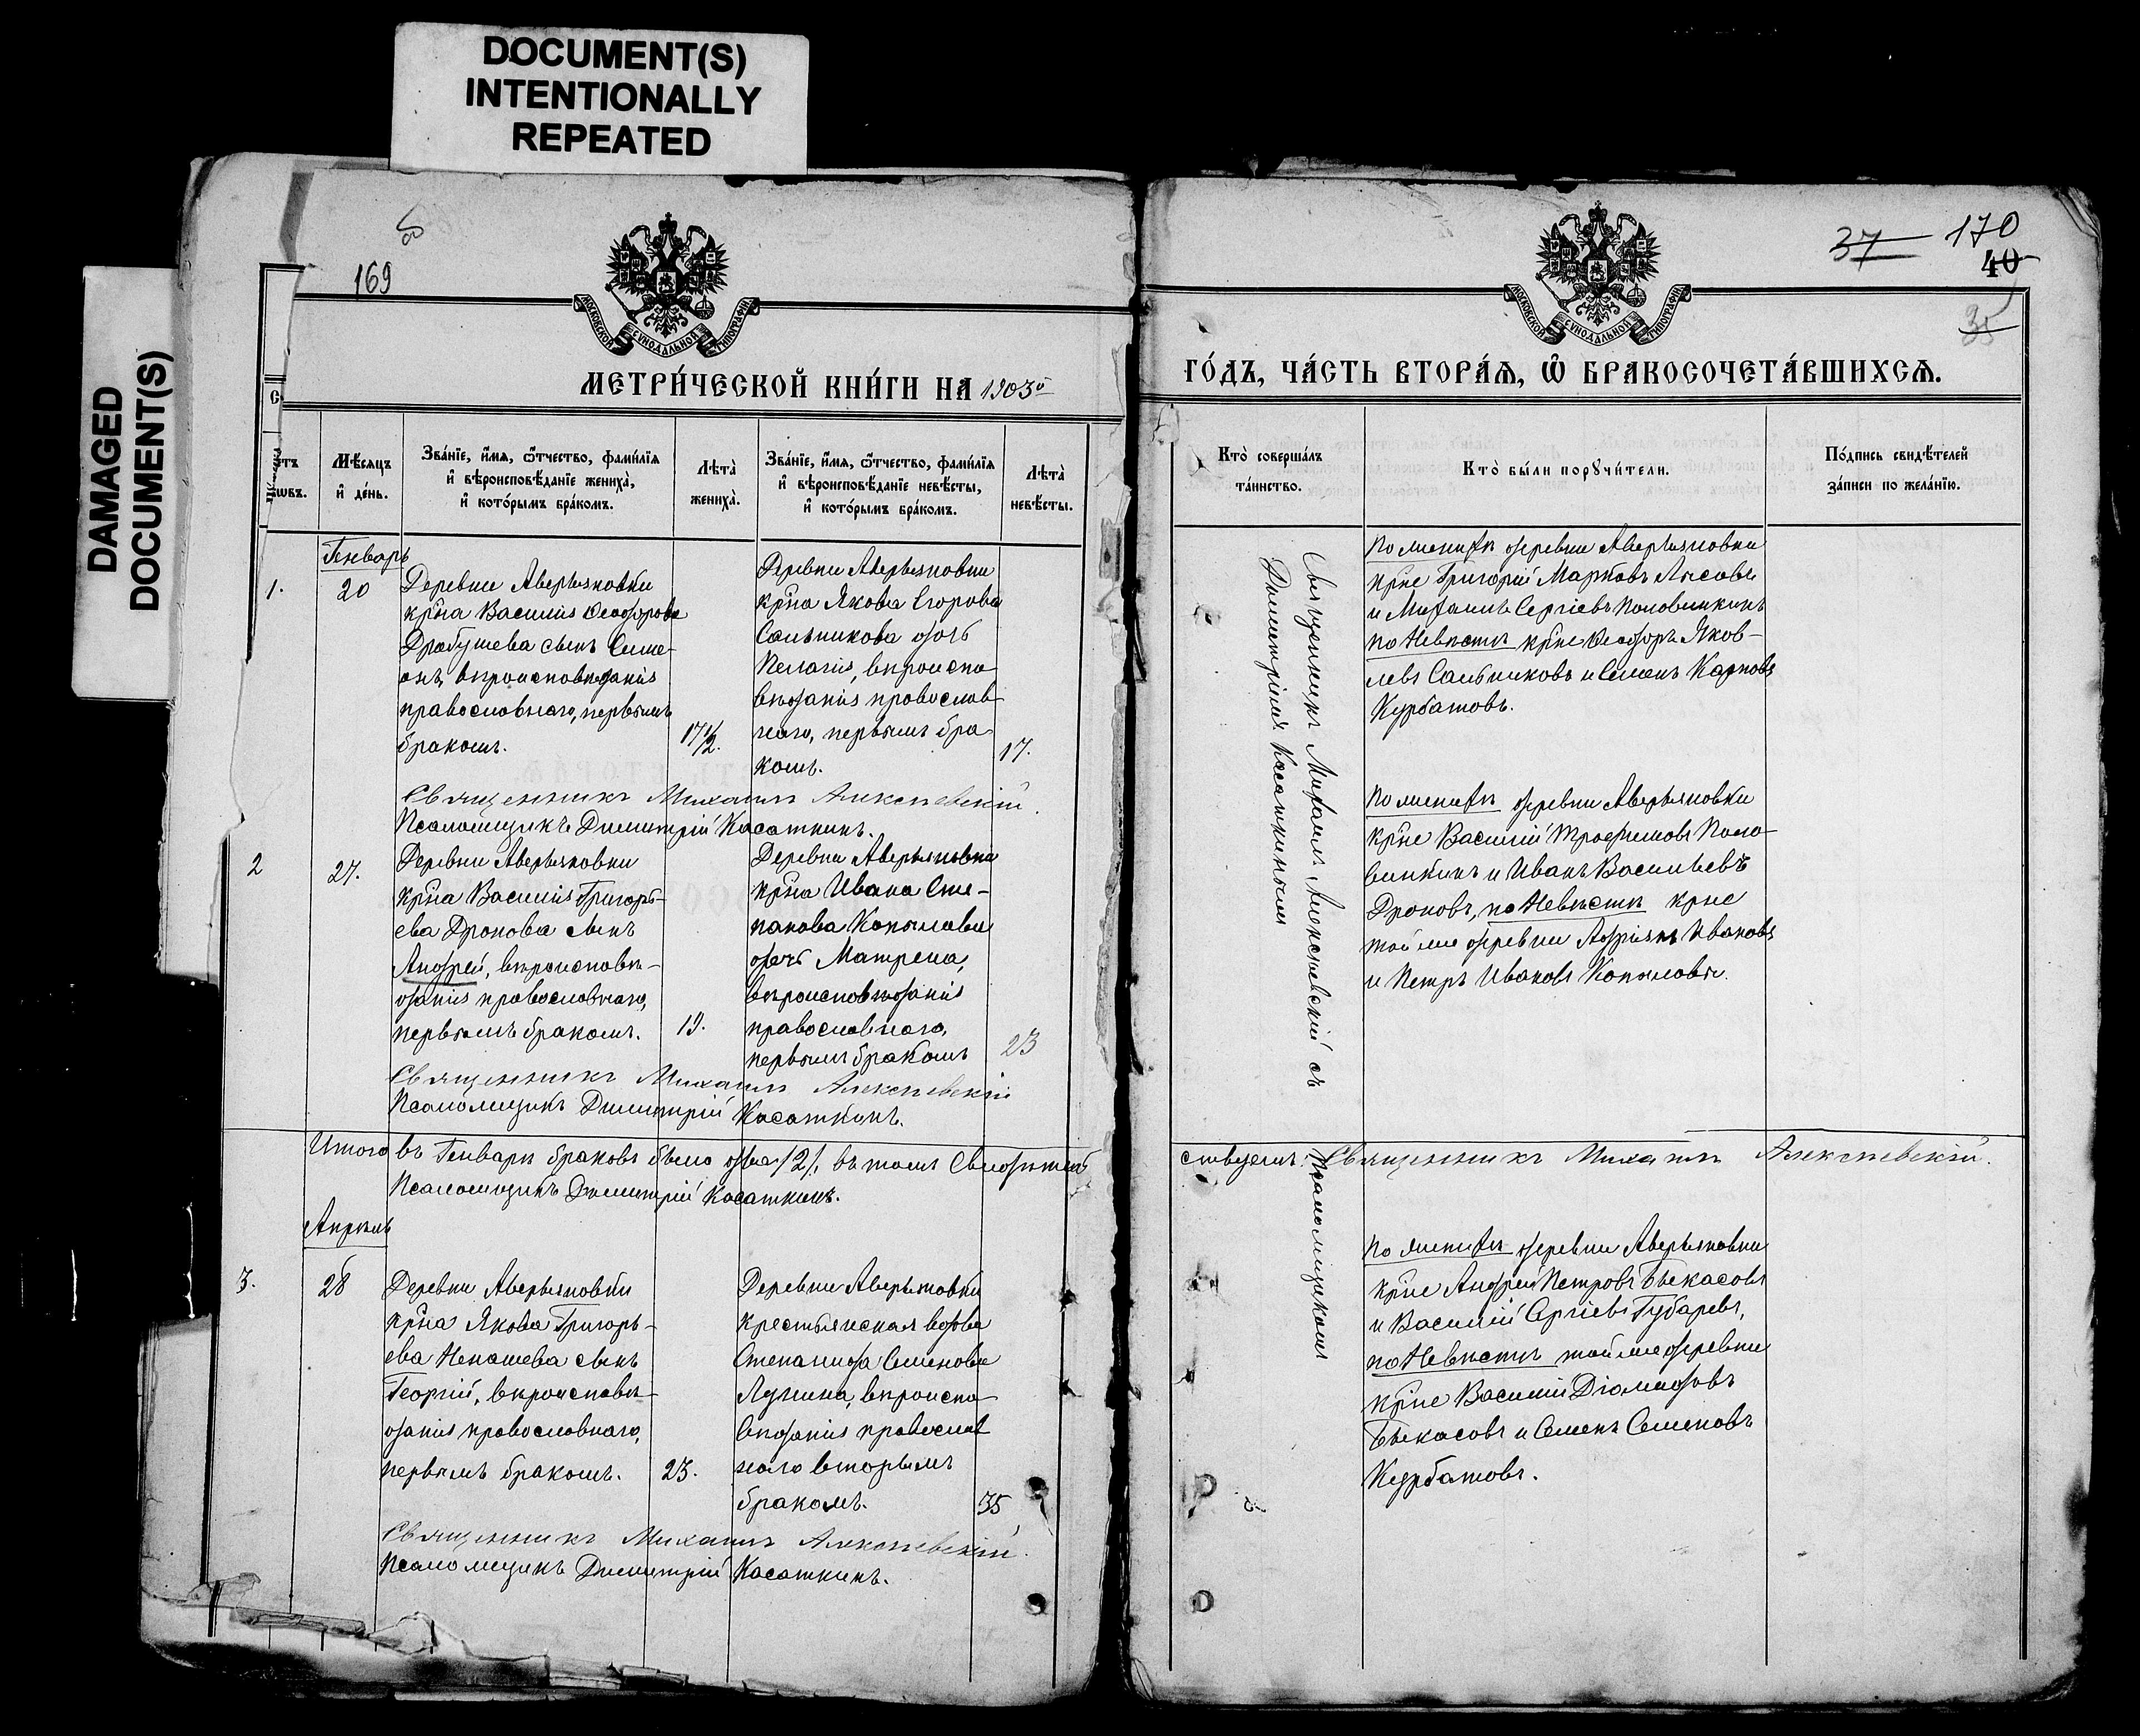 DOCUMENT(S)
INTENTIONALLY
REPEATED
DAMAGED
DOCUMENT(S)
169
МОСКОВСКОЙ СѴНОДАЛЬНОЙ ТИПОГРАФІИ
МЕТРИ́ЧЕСКОЙ КНИ́ГИ НА 1903й
Мѣсяцъ
и҆ де́нь.
Зва́нїе, и҆́мѧ, ѻ҆́тчество, фамилїѧ
и҆ вѣроисповѣ́данїе жениха̀,
и҆ кото́рымъ бра́комъ.
Лѣта̀
жениха̀.
Зва́нїе, и҆́мѧ, ѻ҆́тчество, фамилїѧ
и҆ вѣроисповѣ́данїе невѣ́сты,
и҆ кото́рымъ бра́комъ.
Лѣта̀
невѣ́сты.
1.
Генварь
20
Деревни Аверьяновки
крна Василія Ѳеодорова
Дробушева сынъ Симе-
онъ, вѣроисповѣданія
православнаго, первымъ
бракомъ.
17½.
Деревни Аверьяновки
крна Якова Егорова
Сальникова дочь
Пелагія, вѣроиспо-
вѣданія православ-
наго, первымъ бра-
комъ.
17.
Священникъ Михаилъ Алексѣевскій.
Псаломщикъ Димитрій Касаткинъ.
2
27.
Деревни Аверьяновки
крна Василія Григорь-
ева Дронова сынъ
Андрей, вѣроисповѣ-
данія православнаго,
первымъ бракомъ.
19.
Деревни Аверьяновки
крна Ивана Сте-
панова Копылова
дочь Матрена,
вѣроисповѣданія
православнаго,
первымъ бракомъ
23
Священникъ Михаилъ Алексѣевскій
Псаломщикъ Димитрій Касаткинъ.
Итого въ Генварѣ браковъ было два /2/, въ томъ свидѣтель
Псаломщикъ Димитрій Касаткинъ.
Апрѣль
3.
28
Деревни Аверьяновки
крна Якова Григорь-
ева Ненашева сынъ
Георгій, вѣроисповѣ-
данія православнаго,
первымъ бракомъ.
23.
Деревни Аверьяновки
крестьянская вдова
Степанида Семенова
Лунина, вѣроиспо-
вѣданія православ
наго вторымъ
бракомъ.
35
Священникъ Михаилъ Алексѣевскій.
Псаломщикъ Димитрій Касаткинъ.
37 170
40
35
МОСКОВСКОЙ СѴНОДАЛЬНОЙ ТИПОГРАФІИ
ГО́ДЪ, ЧА́СТЬ ВТОРА́Ѧ, Ѽ БРАКОСОЧЕТА́ВШИХСѦ.
Кто̀ соверша́лъ
та́инство.
Кто̀ бы́ли порꙋчи́тели.
По́дпись свидѣ́телей
за́писи по жела́нїю.
Священникъ Михаилъ Алексѣевскій съ
Псаломщикомъ
Димитріемъ Касаткинымъ
По женихѣ деревни Аверьяновки
крне Григорій Марковъ Лысовъ
и Михаилъ Сергіевъ Половинкинъ
по Невѣстѣ крне Ѳеодоръ Яков-
левъ Сальниковъ и Семенъ Карповъ
Курбатовъ.
По женихѣ деревни Аверьяновки
крне Василій Трофимовъ Поло-
винкинъ и Иванъ Васильевъ
Дроновъ, по Невѣстѣ крне
той же деревни Андріянъ Ивановъ
и Петръ Ивановъ Копыловы.
ствуемъ: Священникъ Михаилъ Алексѣевскій.
По женихѣ деревни Аверьяновки
крне Андрей Петровъ Бекасовъ
и Василій Сергіевъ Губаревъ,
по Невѣстѣ той же деревни
крне Василій Діомидовъ
Бекасовъ и Семенъ Семеновъ
Курбатовъ.